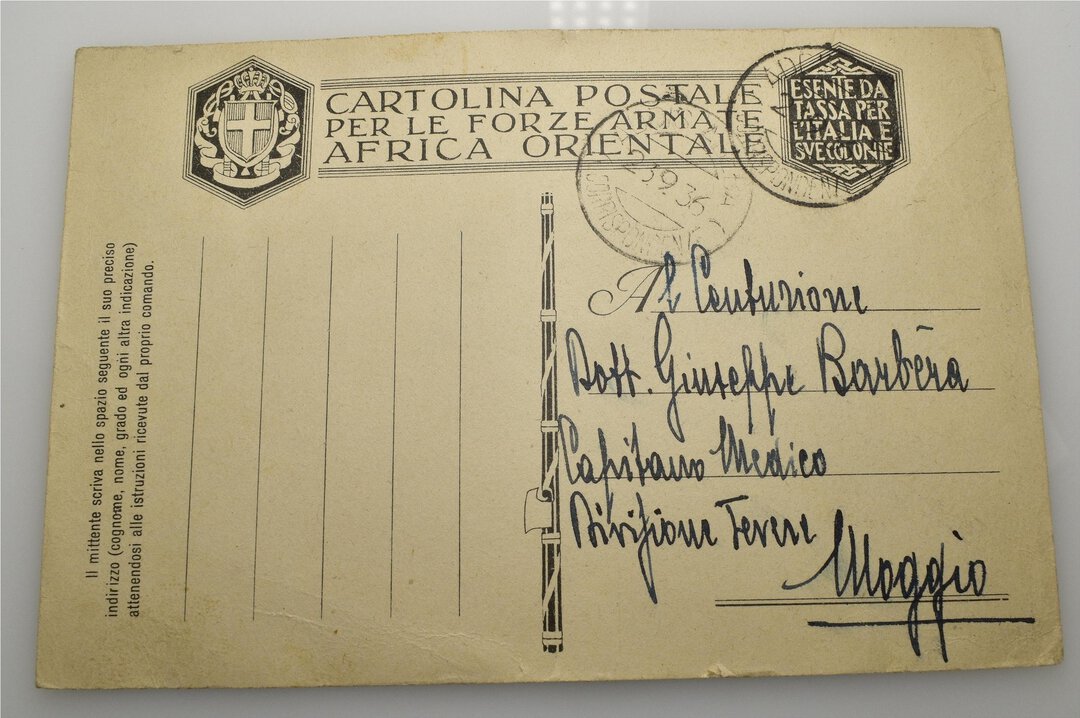 CARTOLINA POSTALE
PER LE FORZE ARMATE
AFRICA ORIENTALE
ESENTE DA
TASSA PER
L'ITALIA E
SVE COLONIE
5.9.36
Il mittente scriva nello spazio seguente il suo preciso
indirizzo (cognome, nome, grado ed ogni altra indicazione)
attenendosi alle istruzioni ricevute dal proprio comando.
Al Centurione
Dott. Giuseppe Barbèra
Capitano Medico
Divisione Tevere
Moggio